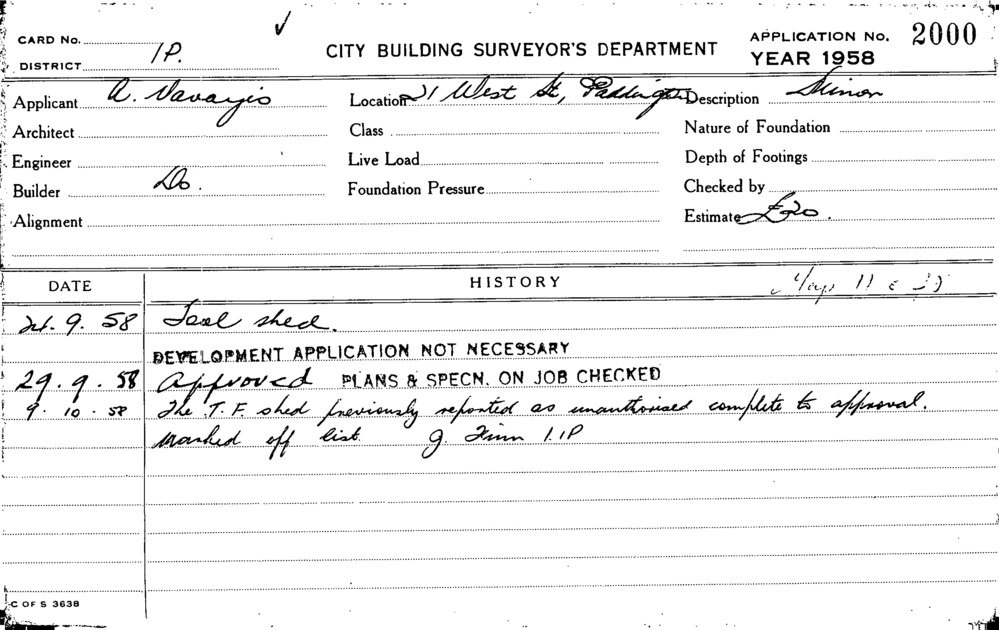 CARD No.
DISTRICT 1P.
CITY BUILDING SURVEYOR'S DEPARTMENT
APPLICATION No. 2000
YEAR 1958
Applicant A. Navayis Location 21 West St, Paddington Description Minor
Architect Class Nature of Foundation
Engineer Live Load Depth of Footings
Builder Do. Foundation Pressure Checked by
Alignment Estimate £20.
DATE HISTORY Map 11
24.9.58 Tool shed.
DEVELOPMENT APPLICATION NOT NECESSARY
29.9.58 Approved PLANS & SPECN. ON JOB CHECKED
9.10.58 The T.F. shed previously reported as unauthorised complete to approval.
Marked off list. J. Finn 1.1P
C OF S 3638